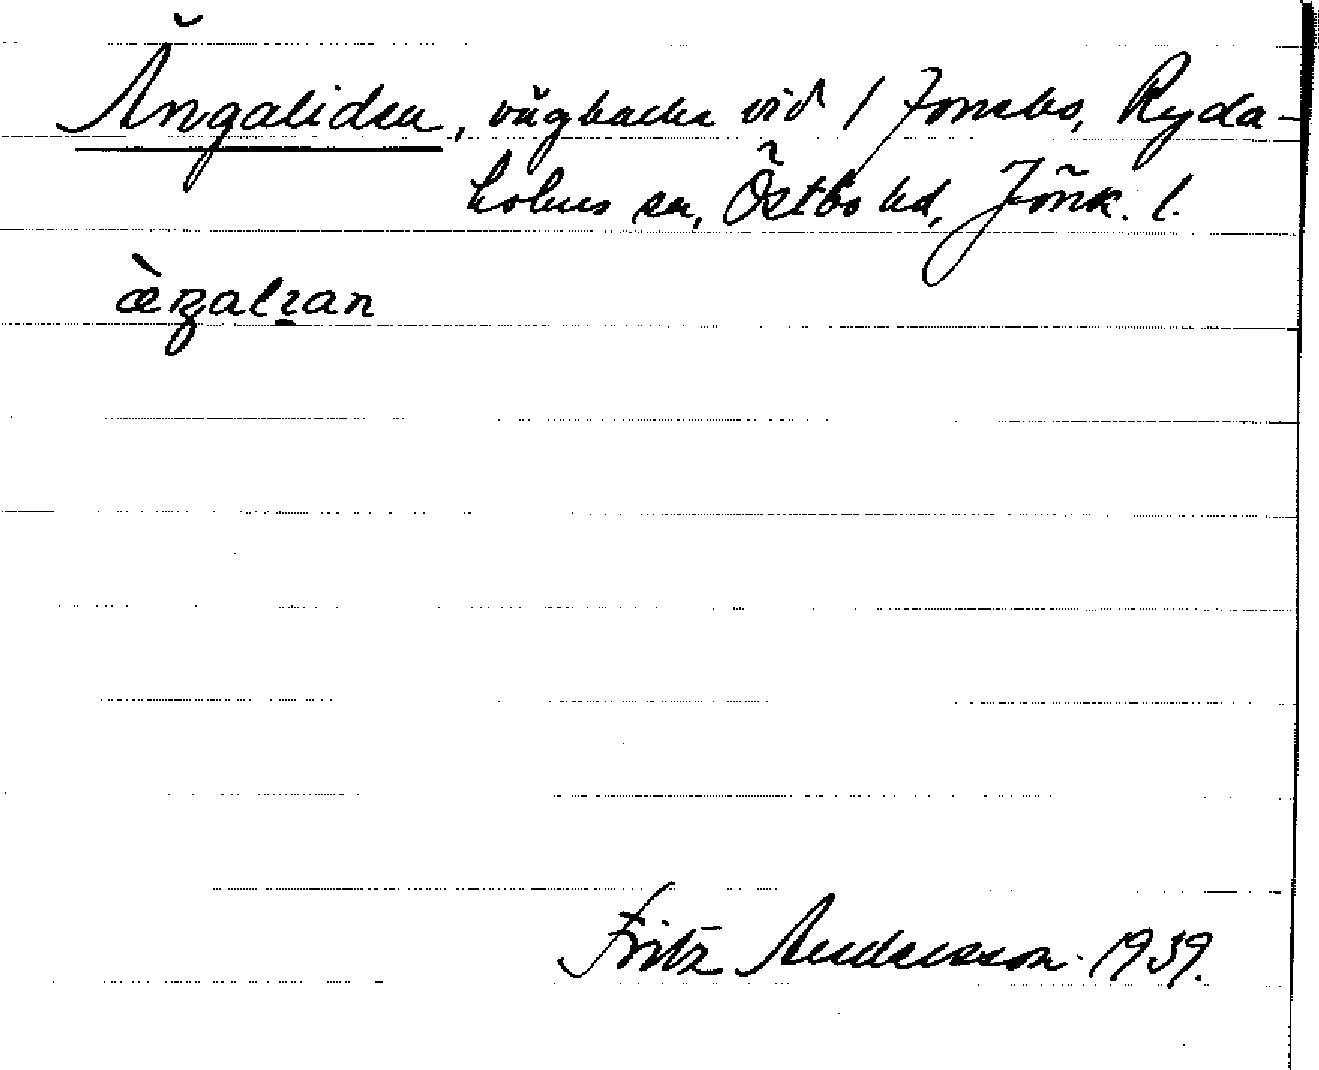 Ängaliden, vägbacke vid / Jonsbo, Ryda-
holms sn, Östbo hd, Jönk. l.
Fritz Andersson 1939.